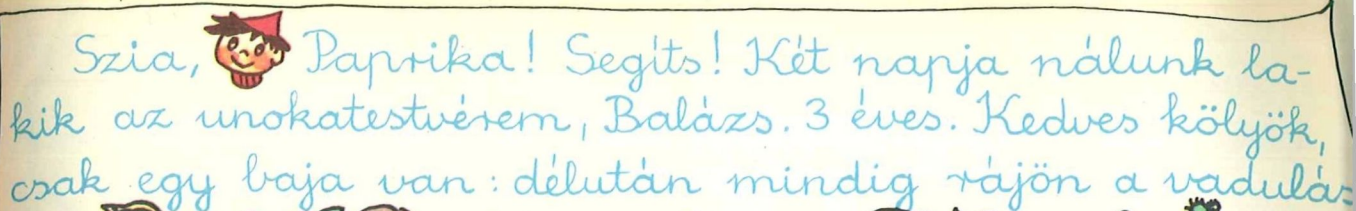 Szia, Paprika! Segíts! Két napja nálunk la-
kik az unokatestvérem, Balázs. 3 éves. Kedves kölyök,
csak egy baja van: délután mindig rájön a vadulá-